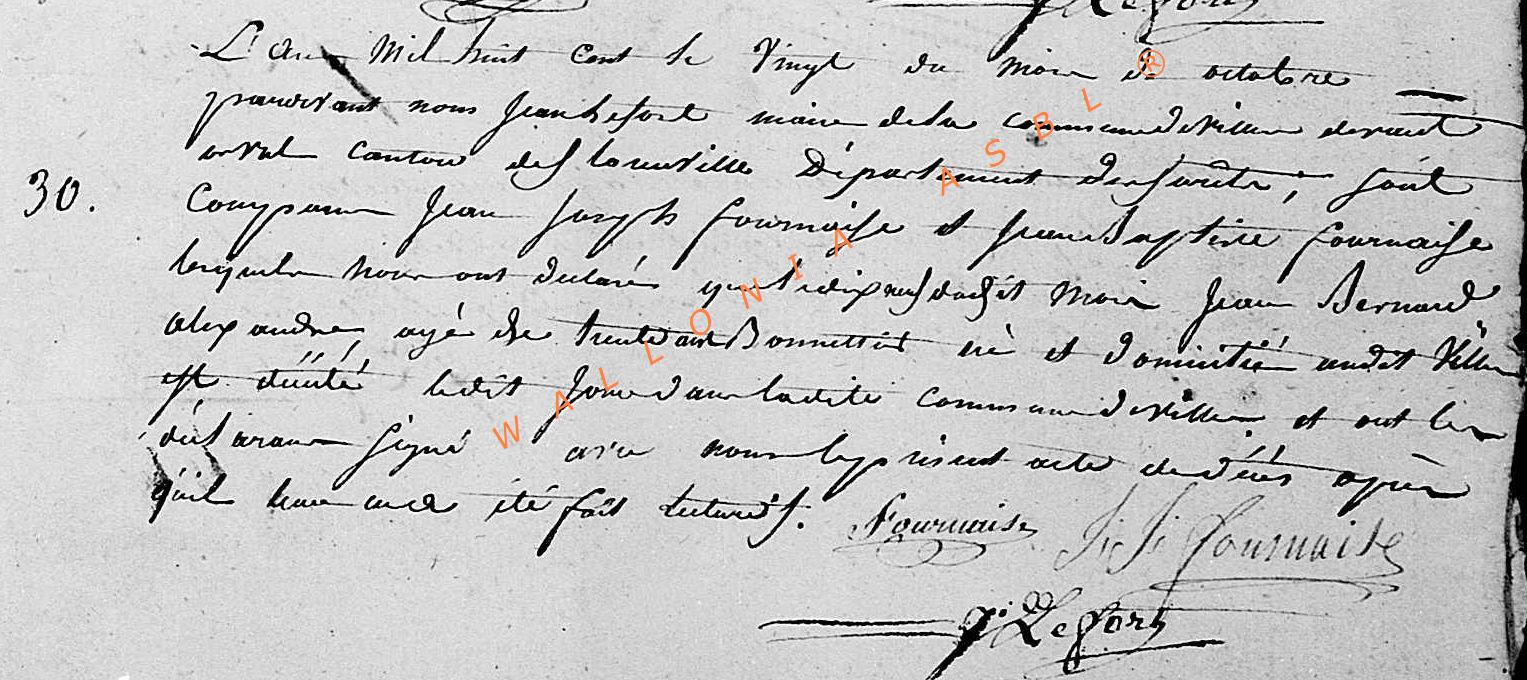 L'an Mil huit cent le Vingt du mois de octobre
pardevant nous Jean Lefort maire dela commune de Viller devant
orval canton de florenville Département des forêts, sont
30.
Comparus Jean Joseph fournaise et Jean Baptiste fournaise
lesquels nous ont declarés que le dix neuf dudit mois Jean Bernard
alexandre, agé de trente ans Bonnettier né et domicilié audit Viller
est décédé ledit Jour dans ladite commune de Viller et ont les
déclarans signé avec nous le présent acte de décés après
qu'il leur en a été fait lecture.
Fournaise J: J: Fournaise
J: Lefort
WALLONIA ASBL ®